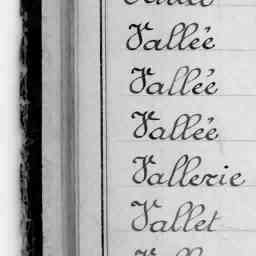 Vallée
Vallée
Vallée
Vallerie
Vallet